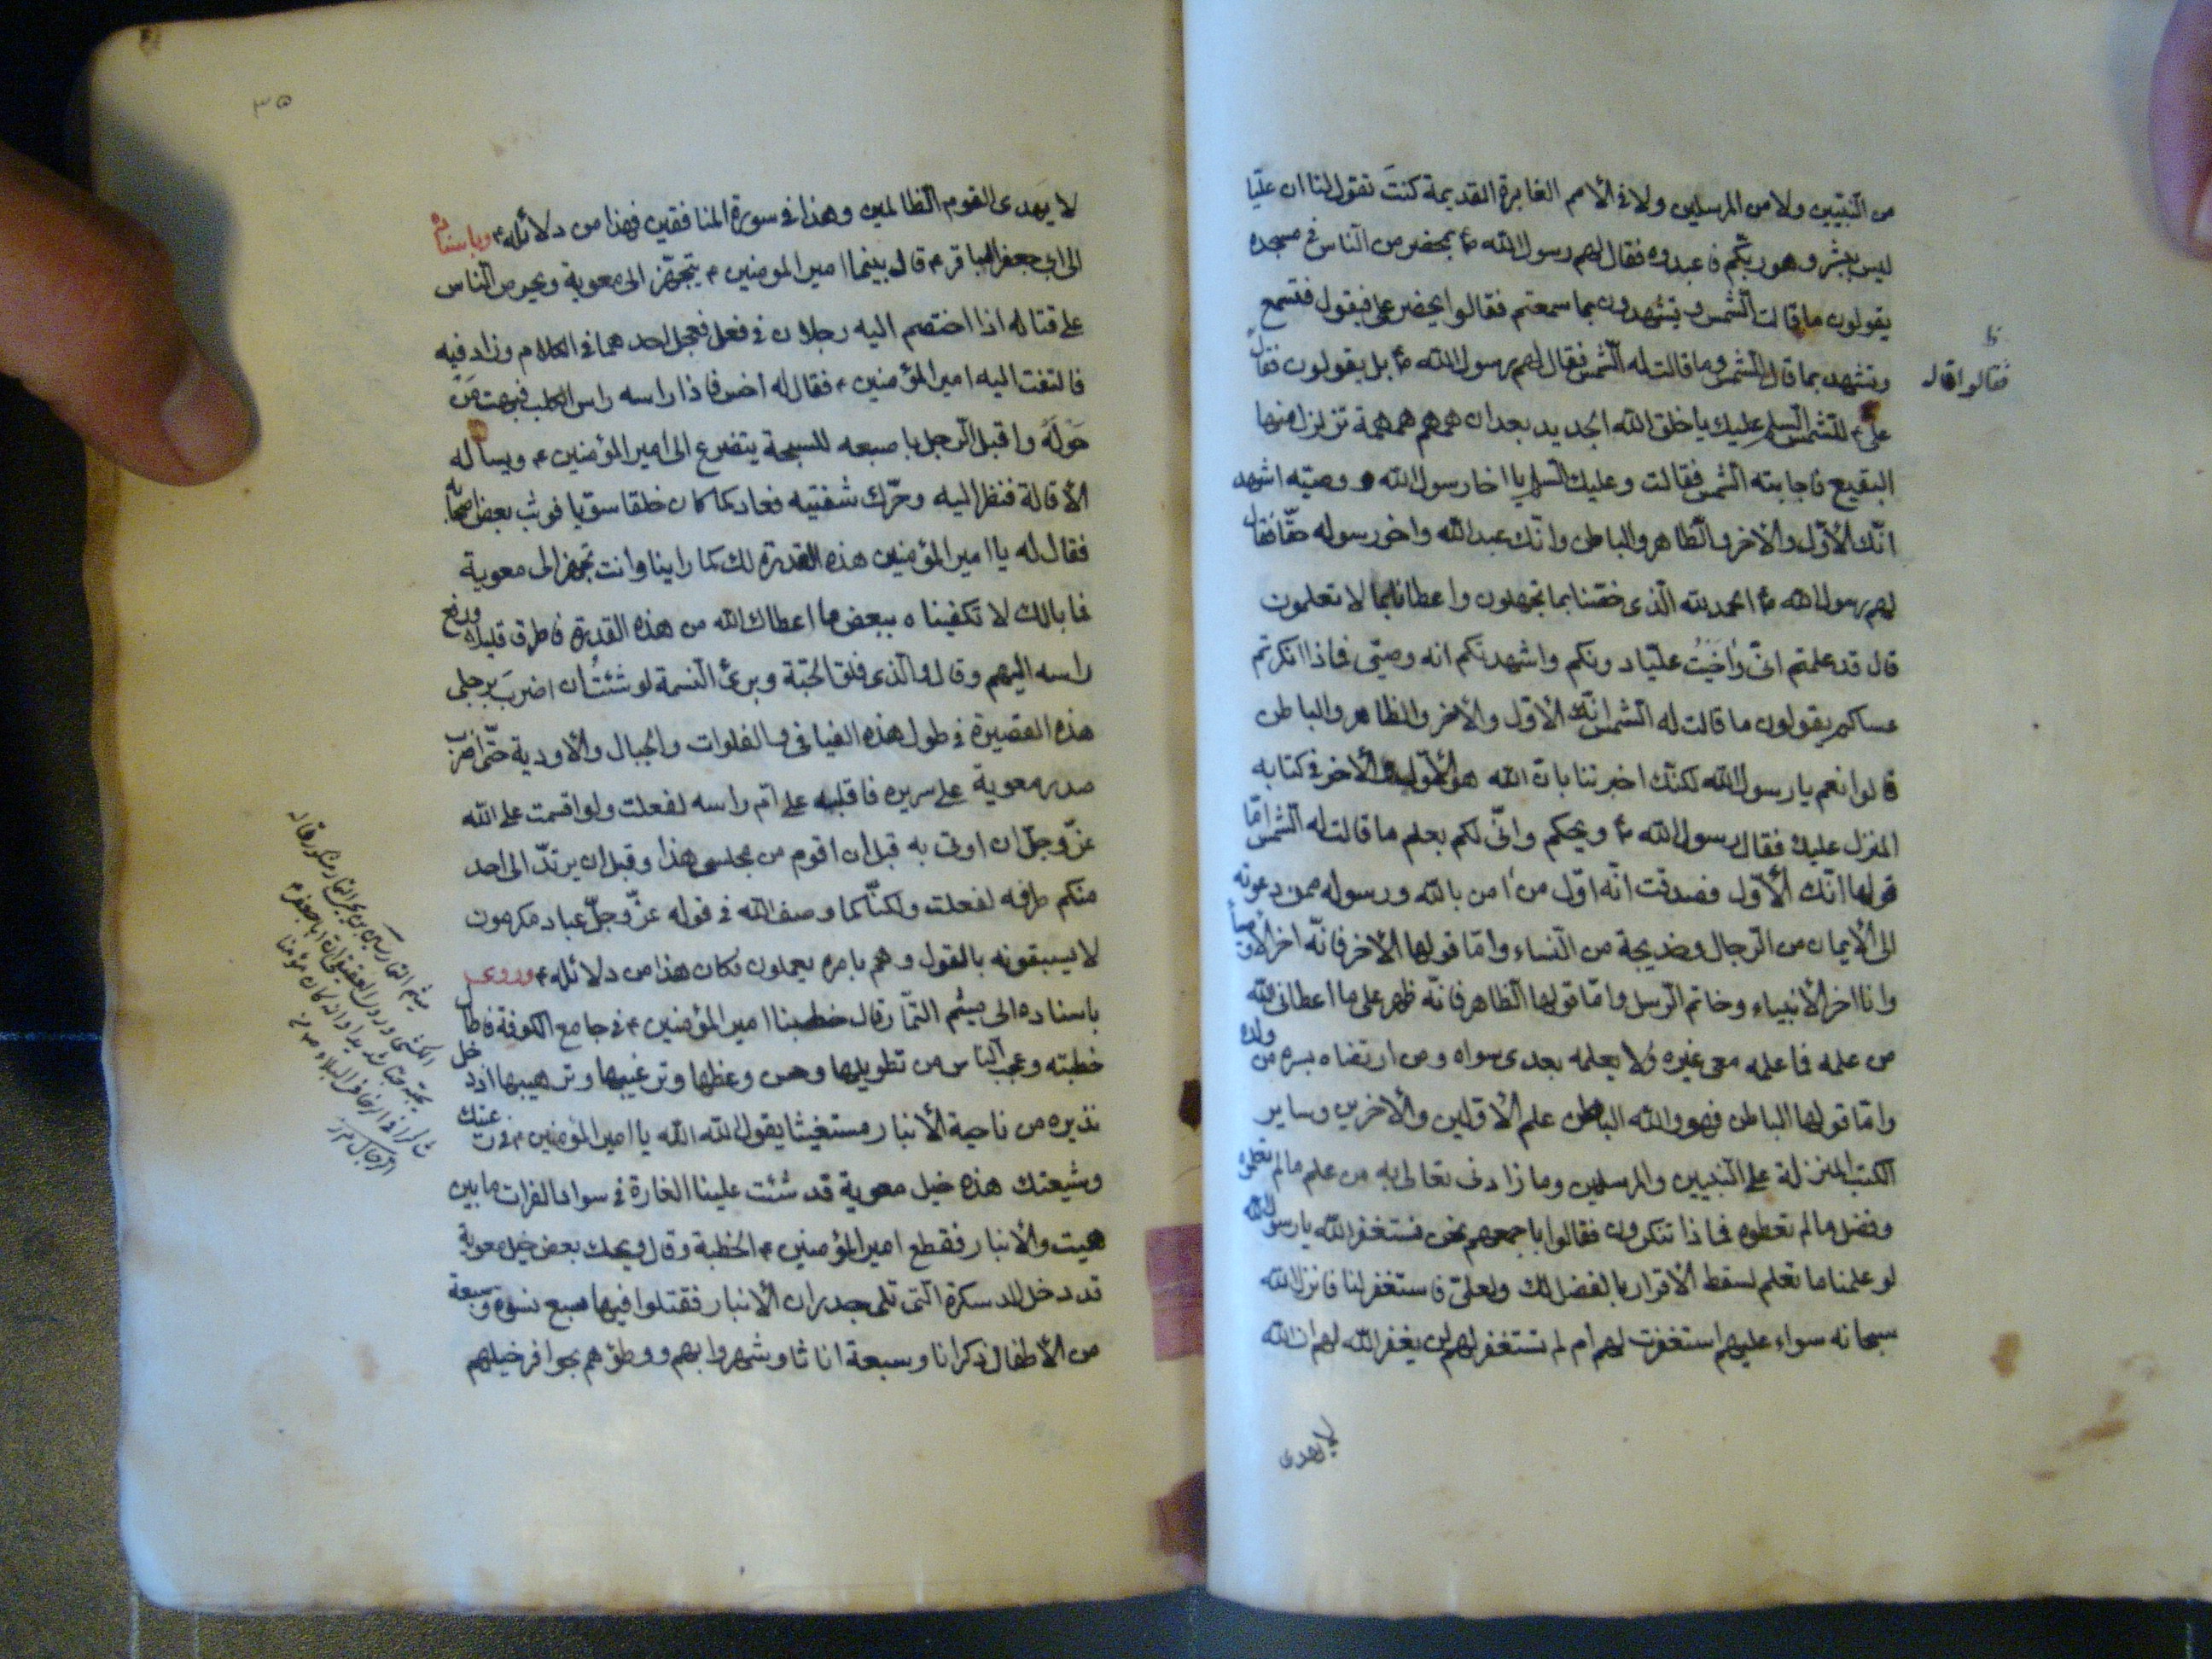 من النبيين ولا من المرسلين ولا في الأمم الغابرة القديمة كنت تقول لنا ان عليا
ليس ببشر وهو ربكم فاعبدوه فقال لهم رسول الله ص بمحضر من الناس في مسجده
يقولون ما قالت الشمس ويشهدون بما سمعتم فقالوا يحضر علي فيقول فنسمع
ونشهد بما قال للشمس وما قالت له الشمس فقال لهم رسول الله ص بل يقولون فقال
فقالوا قال
علي ع للشمس السلم عليك يا خلق الله الجديد بعد ان همهم همهمة تزلزل منها
البقيع فاجابته الشمس فقالت وعليك السلم يا اخا رسول الله ووصيه اشهد
انّك الأوّل والآخر والظاهر والباطن وانّك عبد الله واخو رسوله حقّا فقال
لهم رسول الله ص الحمد لله الذى خصّنا بما تجهلون واعطانا بما لا تعلمون
قال قد علمتم انّى واخيت عليّا دونكم واشهدتكم انه وصيّى فماذا انكرتم
عساكم يقولون ما قالت له الشمس انّك الأوّل والآخر والظاهر والباطن
قالوا نعم يا رسول الله لكنّك اخبرتنا بانّ الله هو الأوّل والآخر في كتابه
المنزل عليك فقال رسول الله ص ويحكم وانّى لكم بعلم ما قالت له الشمس امّا
قولها انّك الأوّل فصدقت انّه اوّل من امن بالله ورسوله ممن دعوته
الى الأيمان من الرجال وخديجة من النساء وامّا قولها الآخر فانّه اخر الأوصياء
وانا اخر الأنبياء وخاتم الرسل وامّا قولها الظاهر فانّه ظهر على ما اعطانى الله
من علمه فما علمه معى غيره ولا يعلمه بعدى سواه ومن ارتضاه بسره من ولده
وامّا قولها الباطن فهو والله الباطن علم الأوّلين والآخرين وساير
الكتب المنزلة على النبيين والمرسلين وما زادنى تعالى به من علم ما لم تعلموه
وفضل ما لم تعطوه فماذا تنكرون فقالوا باجمعهم نحن نستغفر الله يا رسول الله
لو علمنا ما تعلم لسقط الأقرار بالفضل لك ولعلىّ فاستغفر لنا فانزل الله
سبحانه سواء عليهم استغفرت لهم أم لم تستغفر لهم لن يغفر الله لهم ان الله
لا يهدى
٣٥
لا يهدى القوم الظالمين وهذا في سورة المنافقين فهذا من دلائله ع وباسناده
الى ابى جعفر الباقر ع قال بينما امير المومنين ع يتجهّز الى معوية ويحرص الناس
على قتاله اذا اختصم اليه رجلان في فعل فعجل احدهما في الكلام وزاد فيه
فالتفت اليه امير المؤمنين ع فقال له اخس فاذا راسه راس الكلب فبهت من
حوله واقبل الرجل باصبعه المسبحة يتضرع الى امير المؤمنين ع ويسأله
الأقالة فنظر اليه وحرّك شفتيه فعاد كما كان خلقا سويا فوثب بعض اصحابه
فقال له يا امير المؤمنين هذه القدرة لك كما راينا وانت تجهز الى معوية
فما بالك لا تكفيناه ببعض ما اعطاك الله من هذه القدرة فاطرق قليلا ورفع
راسه اليهم وقال والذى فلق الحبّة وبرئ النسمة لو شئت ان اضرب برجلى
هذه القصيرة في طول هذه الفيافى والفلوات والجبال والأودية حتّى اضرب
صدر معوية على سريره فاقلبه على امّ راسه لفعلت ولو اقسمت على الله
عزّ وجلّ ان اوتى به قبل ان اقوم من مجلسى هذا وقبل ان يرتدّ الى احد
منكم طرفه لفعلت ولكنّا كما وصف الله في قوله عزّ وجلّ عباد مكرمون
لا يسبقونه بالقول وهم بامره يعملون فكان هذا من دلائله ع وروى
باسناده الى ميثم التمّار قال خطبنا امير المؤمنين ع في جامع الكوفة فاطال
خطبته وعجب الناس من تطويلها وحسن وعظها وترغيبها وترهيبها اذ دخل
نذيره من ناحية الأنبار مستغيثا يقول الله الله يا امير المؤمنين في رعيتك
وشيعتك هذه خيل معوية قد شنت علينا الغارة في سواد الفرات ما بين
هيت والأنبار فقطع امير المؤمنين ع الخطبة وقال ويحك بعض خيل معوية
قد دخل الدسكرة التى تلى جدران الأنبار فقتلوا فيها سبع نسوة وسبعة
من الأطفال ذكرانا وسبعة اناثا وشهروا بهم ووطؤهم بحوافر خيلهم
ميثم التمار